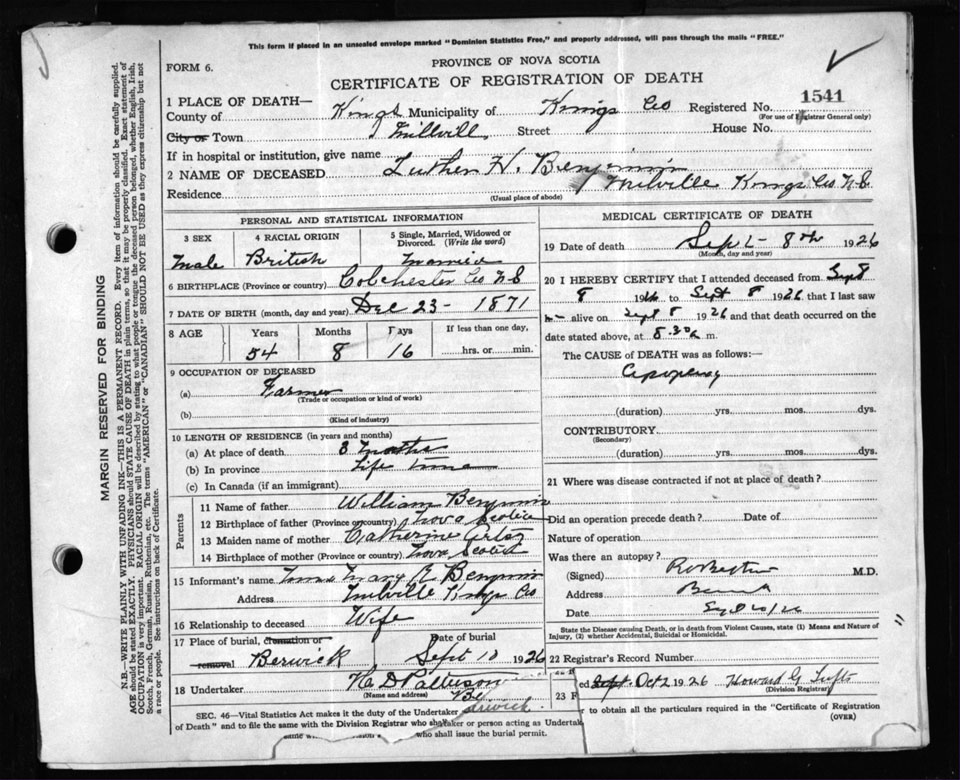 This form if placed in an unsealed envelope marked "Dominion Statistics Free," and properly addressed, will pass through the mails "FREE."
FORM 6.
PROVINCE OF NOVA SCOTIA
CERTIFICATE OF REGISTRATION OF DEATH
1 PLACE OF DEATH—
County of Kings Municipality of Kings Co Registered No. 1541
(For use of Registrar General only)
City or Town Millvill Street House No.
If in hospital or institution, give name
2 NAME OF DECEASED Luther H. Benjamin
Residence Millville Kings Co N.S
(Usual place of abode)
PERSONAL AND STATISTICAL INFORMATION
3 SEX 4 RACIAL ORIGIN 5 Single, Married, Widowed or Divorced. (Write the word)
Male British Married
6 BIRTHPLACE (Province or country) Colchester Co N S
7 DATE OF BIRTH (month, day and year) Dec 23 - 1871
8 AGE Years Months Days If less than one day,
54 8 16 hrs. or min.
9 OCCUPATION OF DECEASED
(a) Farmer
(Trade or occupation or kind of work)
(b)
(Kind of industry)
10 LENGTH OF RESIDENCE (in years and months)
(a) At place of death 3 months
(b) In province Life time
(c) In Canada (if an immigrant)
Parents
11 Name of father William Benjamin
12 Birthplace of father (Province or country) Nova Scotia
13 Maiden name of mother Catherine
14 Birthplace of mother (Province or country) Nova Scotia
15 Informant's name Mary E Benjamin
Address Millville Kings Co
16 Relationship to deceased Wife
17 Place of burial, cremation or removal Berwick Date of burial Sept 10 1926
18 Undertaker
(Name and address) Berwick
SEC. 46—Vital Statistics Act makes it the duty of the Undertaker
of Death" and to file the same with the Division Registrar who shall
undertaker or person acting as Undertak
who shall issue the burial permit.
MEDICAL CERTIFICATE OF DEATH
19 Date of death Sept 8th 1926
(Month, day and year)
20 I HEREBY CERTIFY that I attended deceased from Sept 8
8 19 to Sept 8 1926 that I last saw
alive on Sept 8 1926 and that death occurred on the
date stated above, at 5.30 m.
The CAUSE of DEATH was as follows:
Apoplexy
(duration) yrs. mos. dys.
CONTRIBUTORY
(Secondary)
(duration) yrs. mos. dys.
21 Where was disease contracted if not at place of death?
Did an operation precede death? Date of
Nature of operation
Was there an autopsy?
(Signed) M.D.
Address
Date
State the Disease causing Death, or in death from Violent Causes, state (1) Means and Nature of Injury, (2) whether Accidental, Suicidal or Homicidal.
22 Registrar's Record Number
23 F ed Sept. Oct 2 1926 Howard G Tufts
(Division Registrar)
r to obtain all the particulars required in the "Certificate of Registration
(OVER)
MARGIN RESERVED FOR BINDING
N.B.—WRITE PLAINLY WITH UNFADING INK—THIS IS A PERMANENT RECORD. Every item of information should be carefully supplied.
AGE should be stated EXACTLY. PHYSICIANS should STATE CAUSE OF DEATH in plain terms, so that it may be properly classified. Exact statement of
OCCUPATION is very important. RACIAL ORIGIN will be described by stating to what people or tongue the deceased person belonged, whether English, Irish,
Scotch, French, German, Russian, Ruthenian, etc. The terms "AMERICAN" or "CANADIAN" SHOULD NOT BE USED as they express citizenship but not
a race or people. See instructions on back of Certificate.